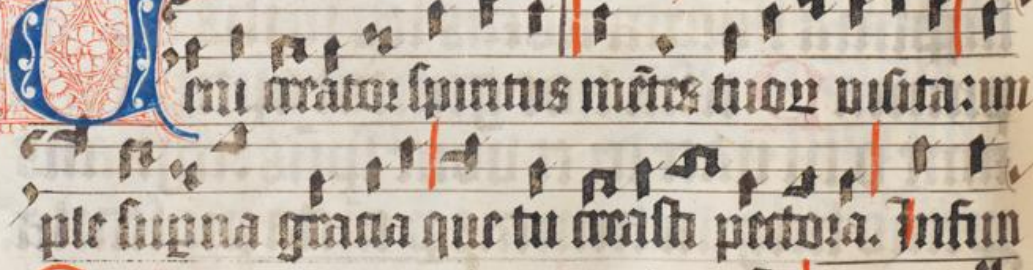 Veni creator spiritus mẽtes tuoꝝ visita: im
ple supna gracia que tu creasti pectora. Infirm